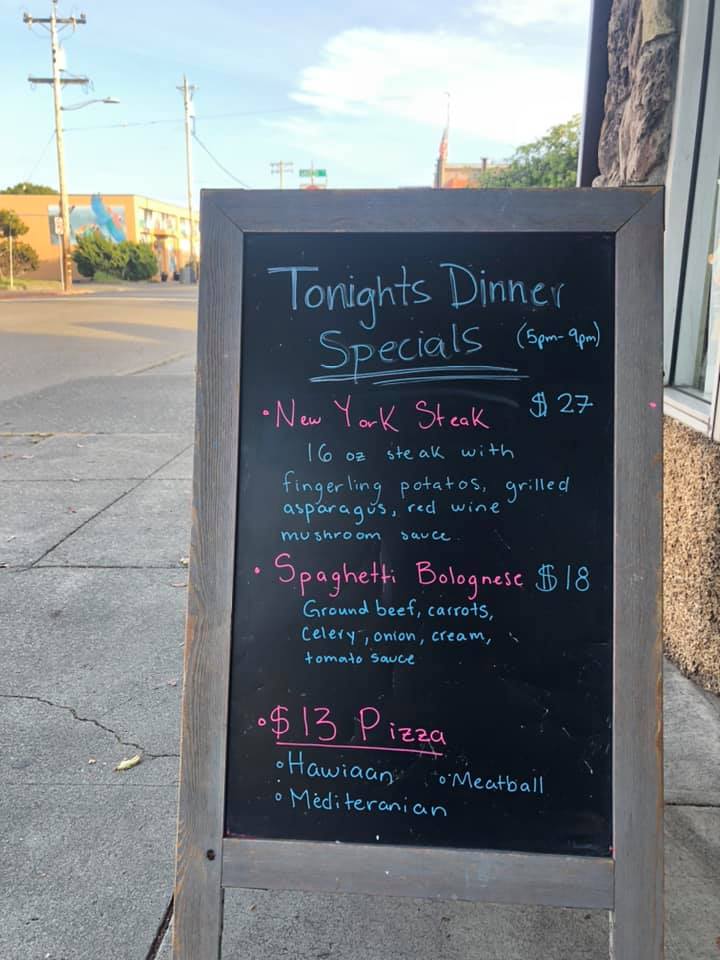 Tonights Dinner
Specials (5pm-9pm)
• New York Steak $27
16 oz steak with
fingerling potatos, grilled
asparagus, red wine
mushroom sauce
• Spaghetti Bolognese $18
Ground beef, carrots,
Celery, onion, cream,
tomato sauce
• $13 Pizza
• Hawiaan • Meatball
• Mediteranian